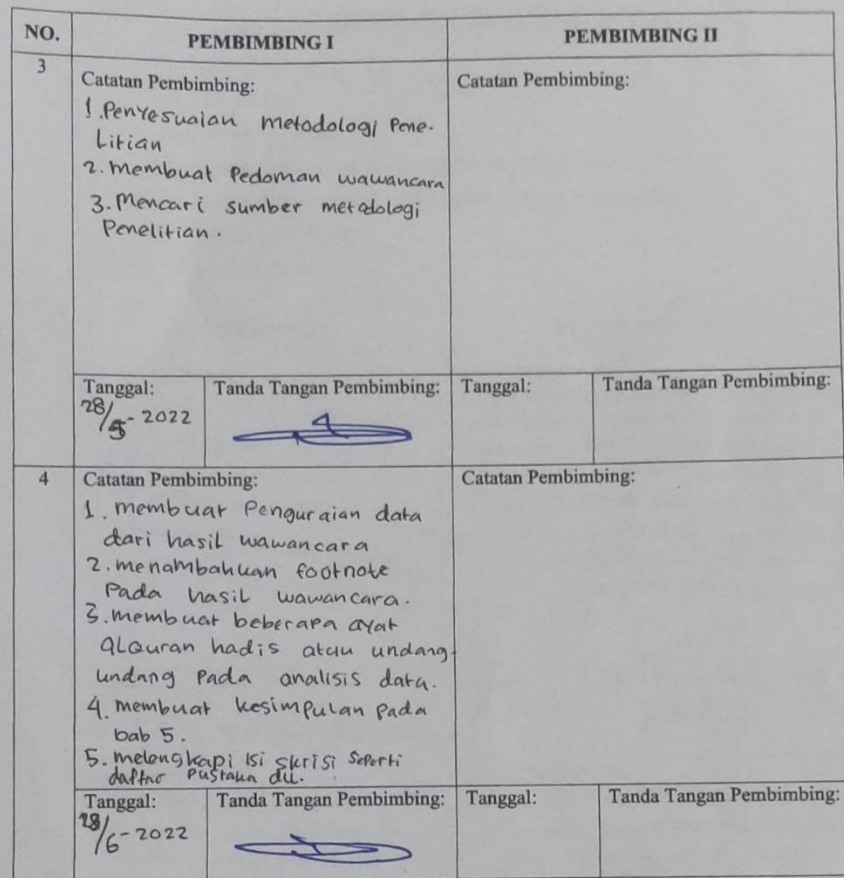 NO. PEMBIMBING I PEMBIMBING II
3
Catatan Pembimbing:
1. Penyesuaian metodologi Pene-
Litian
2. Membuat Pedoman wawancara
3. Mencari sumber metodologi
Penelitian.
Catatan Pembimbing:
Tanggal:
28/5-2022
Tanda Tangan Pembimbing:
Tanggal:
Tanda Tangan Pembimbing:
4
Catatan Pembimbing:
1. membuat Penguraian data
dari hasil wawancara
2. menambahkan footnote
Pada hasil wawancara.
3. membuat beberapa ayat
alquran hadis atau undang-
undang Pada analisis data.
4. membuat kesimpulan Pada
bab 5.
5. melengkapi isi skrisi seperti
daftar Pustaka dll.
Catatan Pembimbing:
Tanggal:
28/6-2022
Tanda Tangan Pembimbing:
Tanggal:
Tanda Tangan Pembimbing: